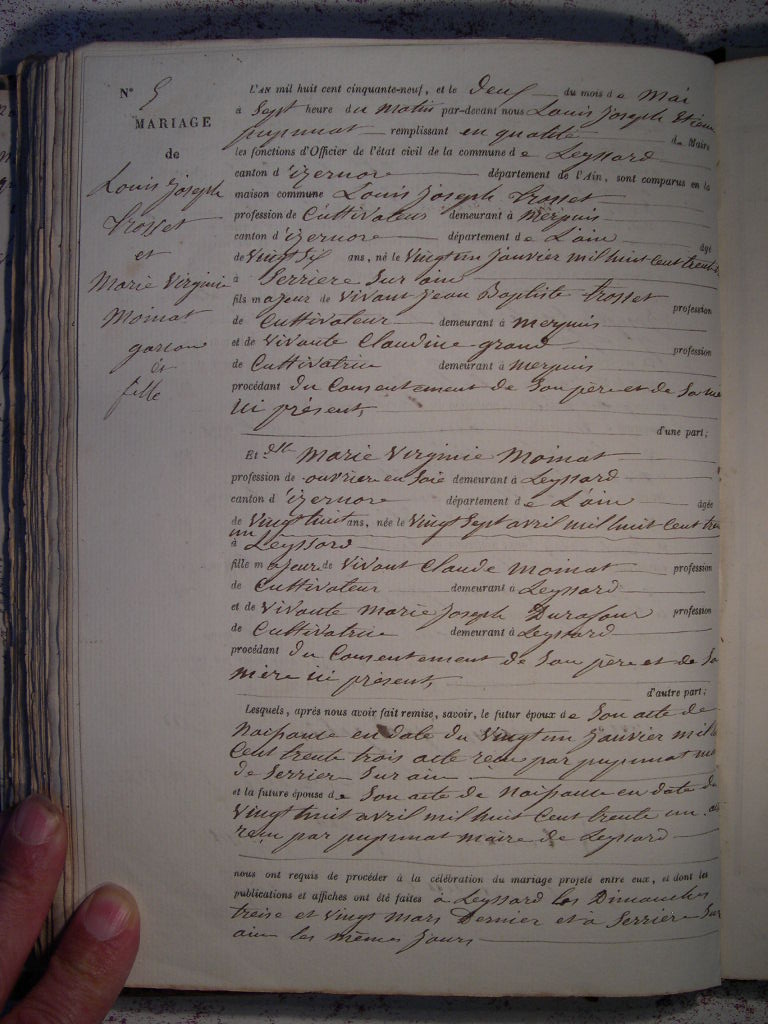 N° 5
MARIAGE
de
Louis Joseph
Trosset
et
Marie Virginie
Moinat
garçon
et
fille
L'AN mil huit cent cinquante-neuf, et le Deux du mois de Mai
à Sept heure du matin par-devant nous Louis Joseph
pupunat remplissant en qualité de Maire
les fonctions d'Officier de l'état civil de la commune de Leyssard
canton d'izernore département de l'Ain, sont comparus en la
maison commune Louis Joseph Trosset
profession de Cultivateur demeurant à merpuis
canton d'izernore département de L'ain âgé
de Vingt Six ans, né le Vingt un janvier mil huit Cent trente
à Serriere Sur ain
fils majeur de Vivant Jean Baptiste trosset profession
de Cultivateur demeurant à merpuis
et de Vivante Claudine grand profession
de Cultivatrice demeurant à merpuis
procédant du Consentement de Son père et de Sa
ici présent,
d'une part;
Et elle Marie Virginie Moinat
profession de ouvrière en Soie demeurant à Leyssard
canton d'izernore département de L'ain âgée
de Vingt huit ans, née le Vingt Sept avril mil huit Cent
un à Leyssard
fille majeur de Vivant Claude moinat profession
de Cultivateur demeurant à Leyssard
et de Vivante marie Joseph Durafour profession
de Cultivatrice demeurant à Leyssard
procédant du Consentement de Son père et de Sa
mère ici présent,
d'autre part;
Lesquels, après nous avoir fait remise, savoir, le futur époux de Son acte de
Naissance en date du Vingt un Janvier mil
Cent trente trois acte reçu par pupunat
de Serriere Sur ain
et la future épouse de Son acte de Naissance en date du
Vingt huit avril mil huit Cent trente un
reçu par pupunat maire de Leyssard
nous ont requis de procéder à la célébration du mariage projeté entre eux, et dont les
publications et affiches ont été faites à Leyssard les Dimanches
treise et Vingt mars Dernier et à Serriere Sur
ain les mêmes Jours